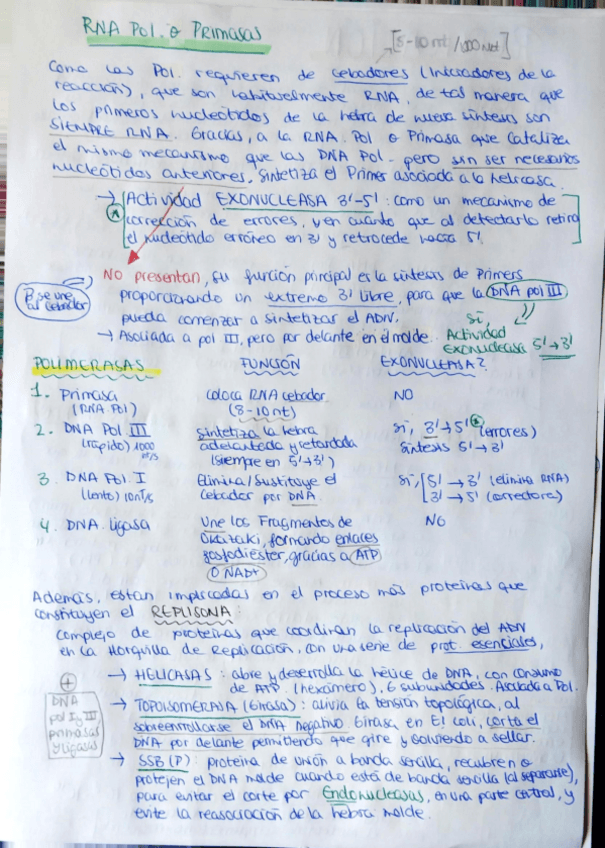 RNA Pol. o Primasas
[8-10 nt /100 Nt]
Como las Pol. requieren de cebadores (Iniciadores de la
reacción), que son habitualmente RNA, de tal manera que
los primeros nucleótidos de la hebra de nueva síntesis son
SIEMPRE RNA. Gracias, a la RNA. Pol o Primasa que cataliza
el mismo mecanismo que las DNA Pol. pero sin ser necesarios
nucleótidos anteriores. Sintetiza el Primer asociada a la helicasa.
→ Actividad EXONUCLEASA 3'-5': como un mecanismo de
* corrección de errores, y en cuanto que al detectarlo retira
el nucleótido erróneo en 3' y retrocede hacia 5'.
NO presentan, su función principal es la síntesis de Primers
proporcionando un extremo 3' libre, para que la DNA pol III
pueda comenzar a sintetizar el ADN.
P se une al cebador
→ Asociada a pol III, pero por delante en el molde.
Sí, Actividad EXONUCLEASA 5'→3'
POLIMERASAS FUNCIÓN EXONUCLEASA?
1. Primasa coloca RNA cebador NO
(RNA Pol) (8-10 nt)
2. DNA Pol III sintetiza la hebra sí, 3'→5' * (errores)
(rápido) 1000 adelantada y retardada síntesis 5'→3'
(siempre en 5'→3')
3. DNA Pol. I Elimina/Sustituye el sí, 5'→3' (elimina RNA)
(lento) 10nt/s cebador por DNA. 3'→5' (correctora)
4. DNA. ligasa Une los Fragmentos de NO
Okazaki, formando enlaces
fosfodiéster, gracias a ATP
O NAD+
Además, están implicadas en el proceso más proteínas que
constituyen el REPLISONA:
Complejo de proteínas que coordinan la replicación del ADN
en la Horquilla de Replicación, con una serie de prot. esenciales,
→ HELICASAS: abre y desarrolla la hélice de DNA, con consumo
de ATP. (hexámero), 6 subunidades. Asociada a Pol.
+
DNA
pol I y III,
primasas
y ligasas
→ TOPOISOMERASA (Girasa): alivia la tensión topológica, al
sobreenrollarse el DNA negativo Girasa en E! coli, corta el
DNA por delante permitiendo que gire y volviendo a sellar.
→ SSB (P): proteína de unión a banda sencilla, recubren o
protejen el DNA molde cuando está de banda sencilla (al separarse),
para evitar el corte por Endonucleasas, en una parte central, y
evite la reasociación de la hebra molde.